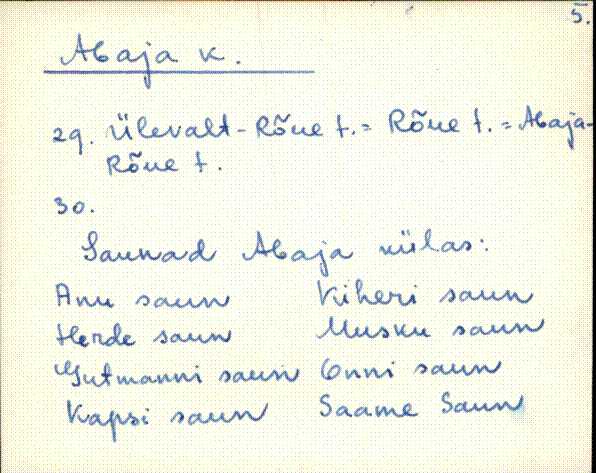 5.
Abaja k.
29. Ülevalt-Rõue t. = Rõue t. = Abaja-
Rõue t.
30.
Saunad Abaja külas:
Anu saun Kiheri saun
Herde saun Musku saun
Gutmanni saun Onni saun
Kapsi saun Saame Saun